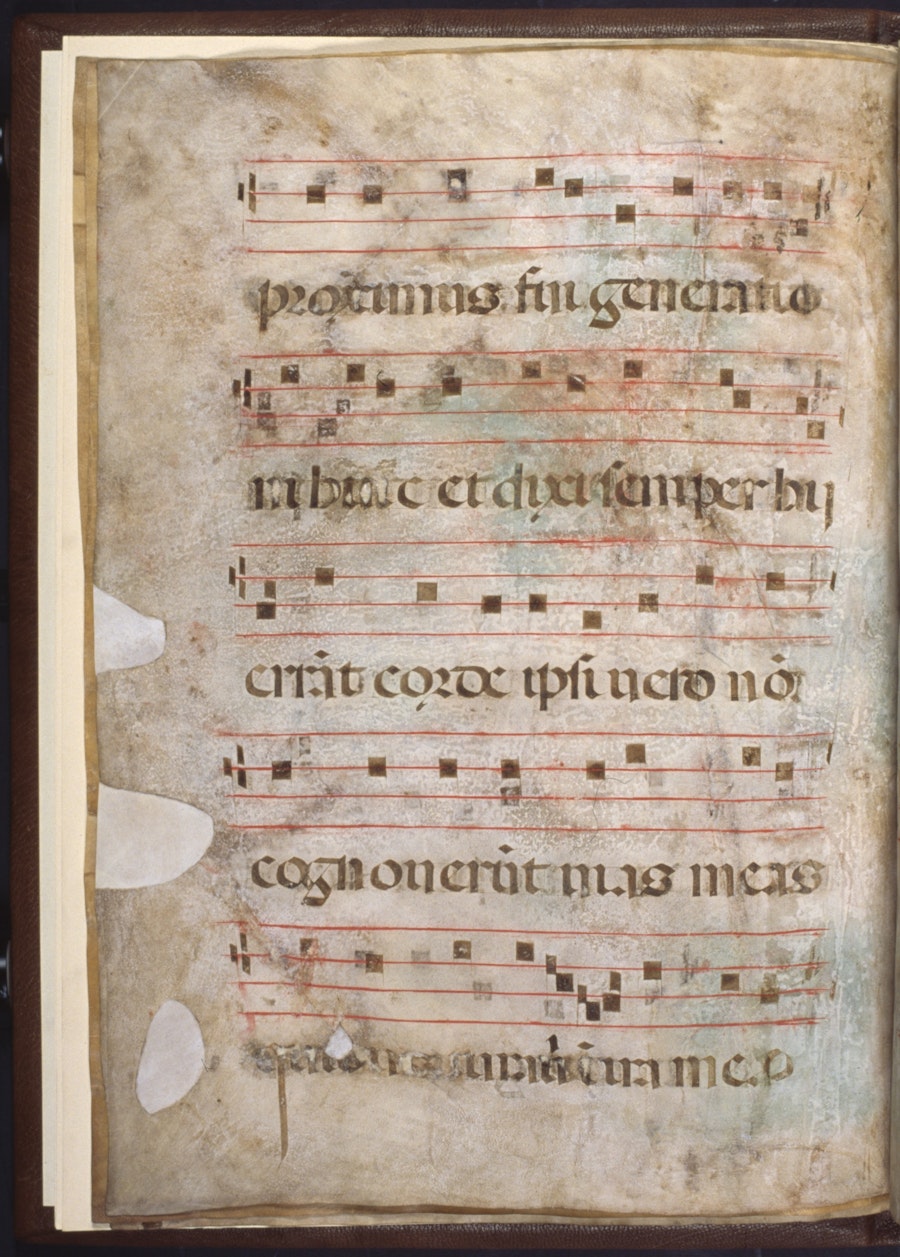 proximus fui generatio
ni huic et dixi semper hij
errāt corde ipsi uero nō
cognouerūt uias meas
ira mea